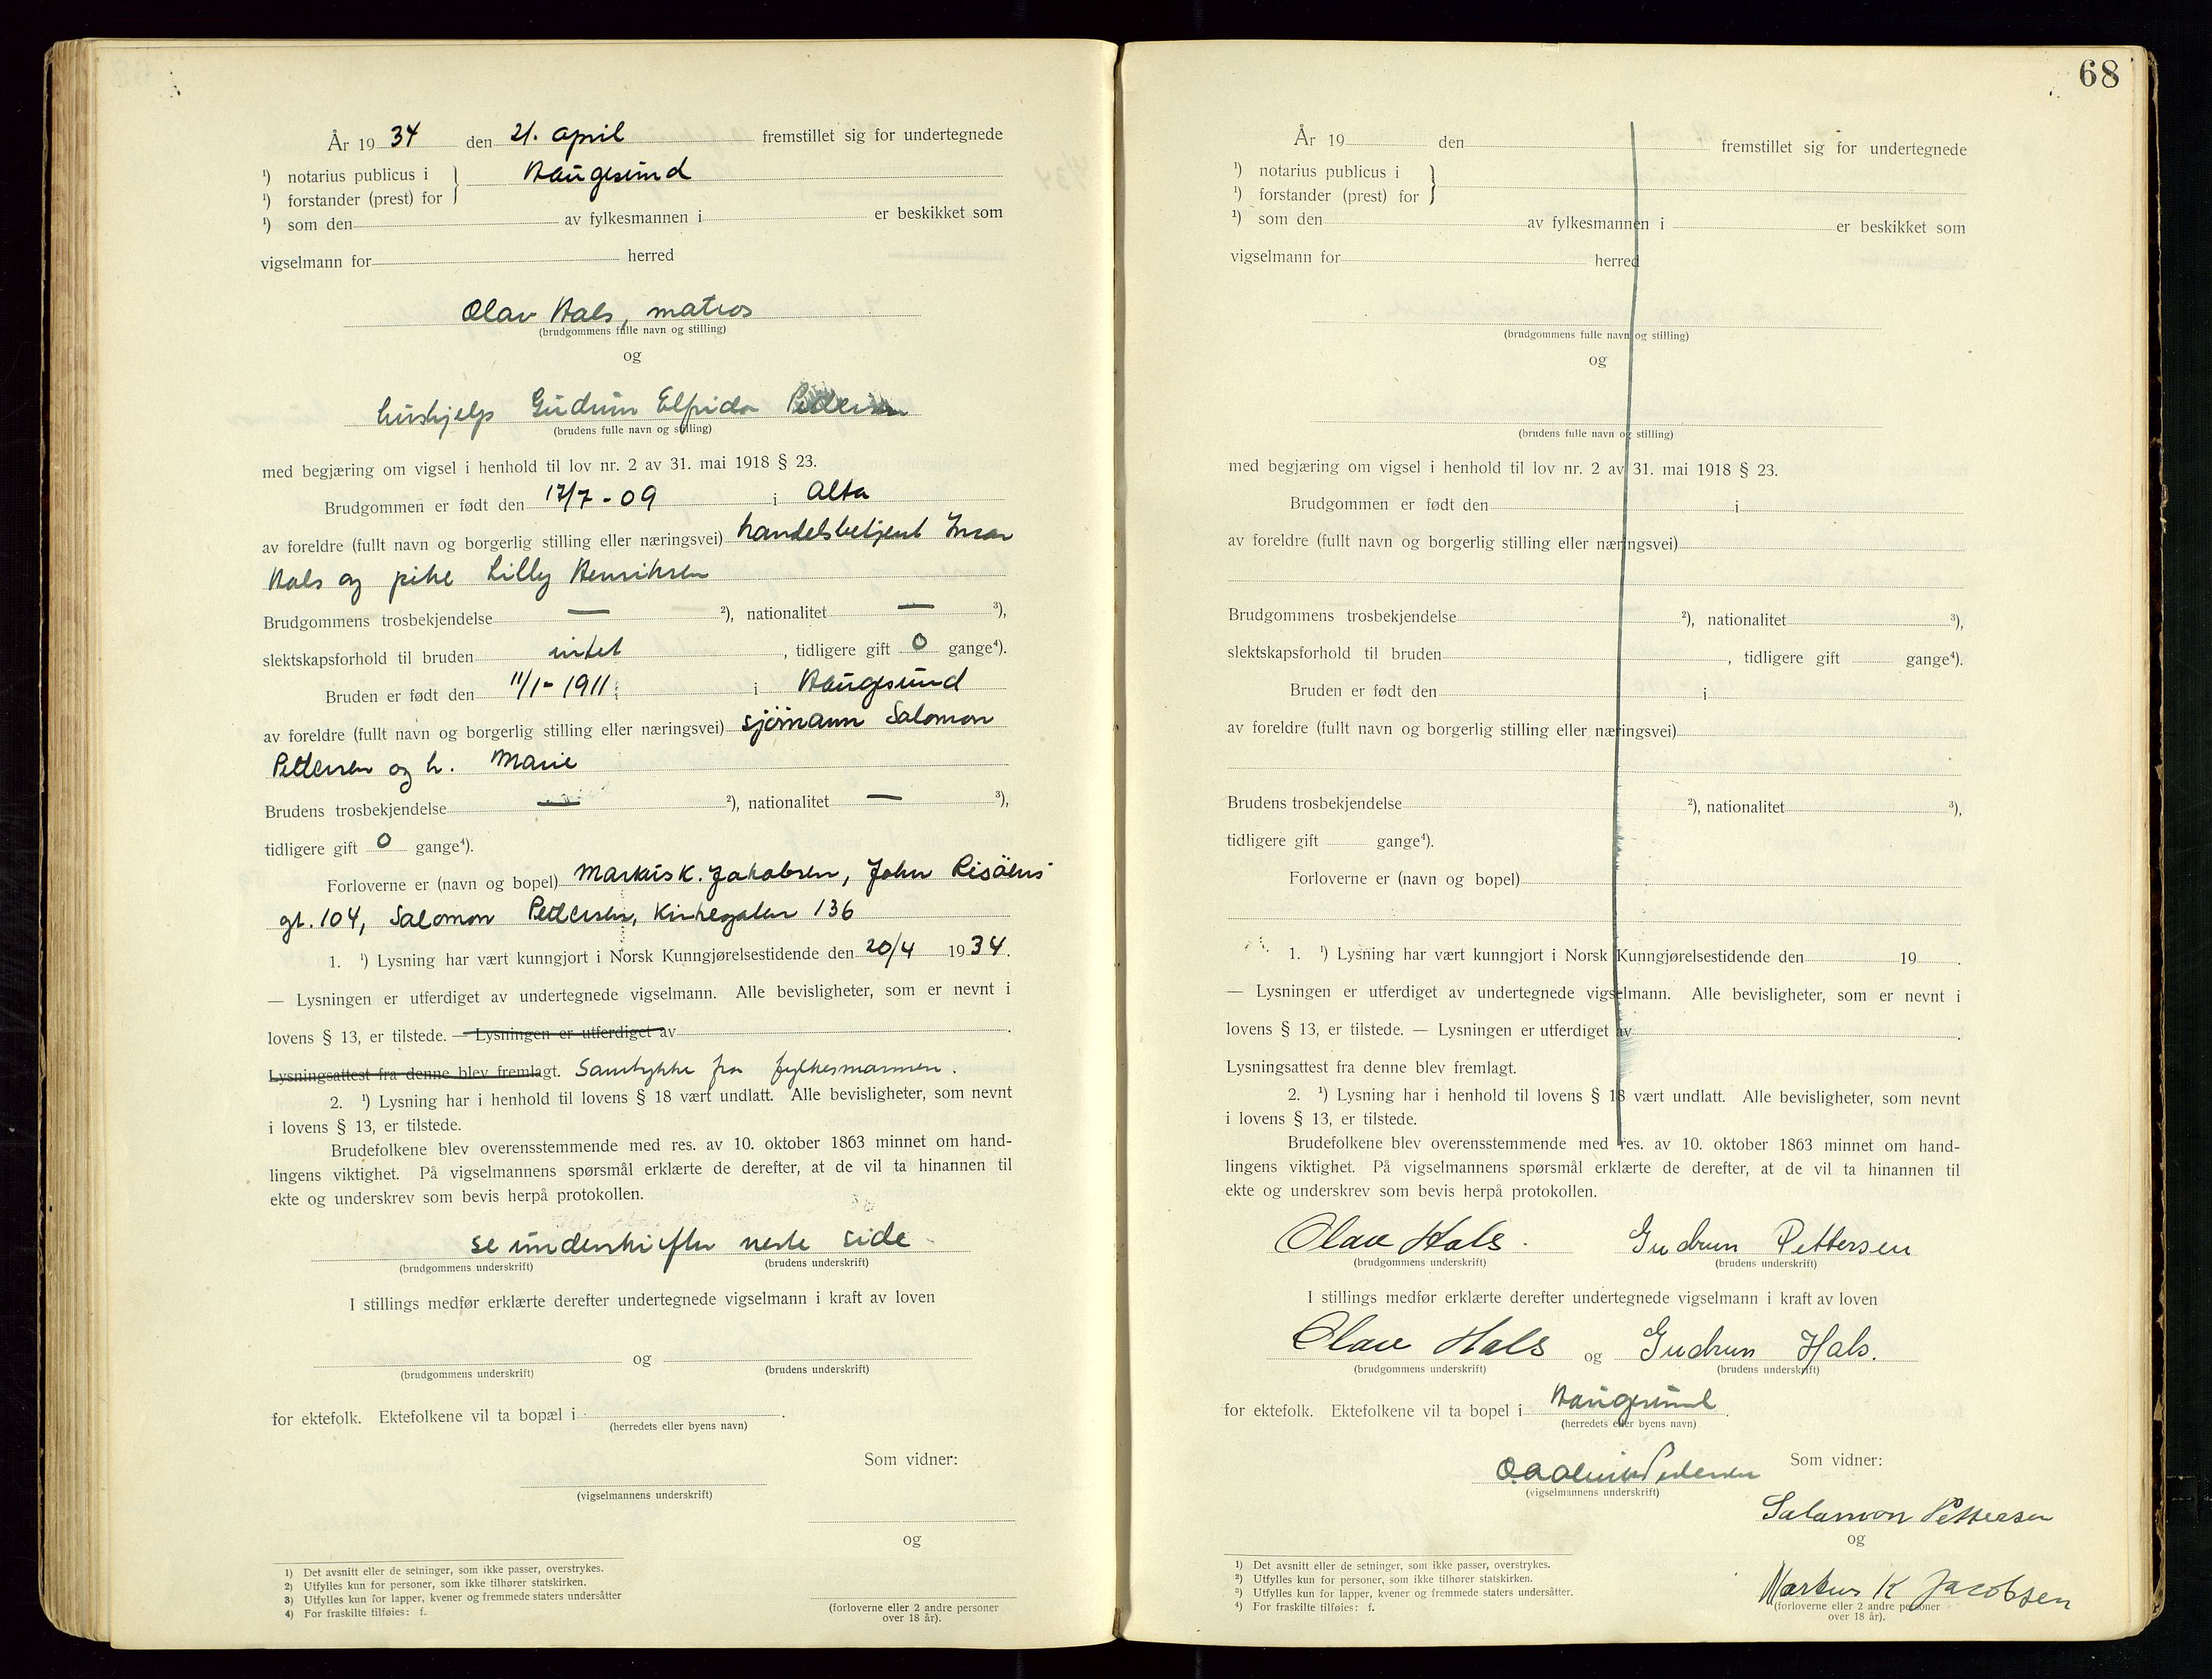 År 19 34 den 21. april fremstillet sig for undertegnede
¹) notarius publicus i } Haugesund
¹) forstander (prest) for
¹) som den av fylkesmannen i er beskikket som
vigselmann for herred
Olav Hals, matros
(brudgommens fulle navn og stilling)
og
hushjelp Gudrun Elfrida Pedersen
(brudens fulle navn og stilling)
med begjæring om vigsel i henhold til lov nr. 2 av 31. mai 1918 § 23.
Brudgommen er født den 17/7 - 09 i Alta
av foreldre (fullt navn og borgerlig stilling eller næringsvei) handelsbetjent
Hals og pike Lilly Henriksen
Brudgommens trosbekjendelse — ²), nationalitet — ³),
slektskapsforhold til bruden intet , tidligere gift 0 gange⁴).
Bruden er født den 11/1 - 1911 i Haugesund
av foreldre (fullt navn og borgerlig stilling eller næringsvei) sjömann Salomon
Pettersen og h. Marie
Brudens trosbekjendelse — ²), nationalitet — ³),
tidligere gift 0 gange⁴).
Forloverne er (navn og bopel) Markus K. Jakobsen, John Risöens
gt. 104, Salomon Pettersen, Kirkegaten 136
1. ¹) Lysning har vært kunngjort i Norsk Kunngjørelsestidende den 20/4 1934.
— Lysningen er utferdiget av undertegnede vigselmann. Alle bevisligheter, som er nevnt i
lovens § 13, er tilstede. — Lysningen er utferdiget av .
Lysningsattest fra denne blev fremlagt. Samtykke fra fylkesmannen.
2. ¹) Lysning har i henhold til lovens § 18 vært undlatt. Alle bevisligheter, som nevnt
i lovens § 13, er tilstede.
Brudefolkene blev overensstemmende med res. av 10. oktober 1863 minnet om hand-
lingens viktighet. På vigselmannens spørsmål erklærte de derefter, at de vil ta hinannen til
ekte og underskrev som bevis herpå protokollen.
se underskrifter neste side
(brudgommens underskrift) (brudens underskrift)
I stillings medfør erklærte derefter undertegnede vigselmann i kraft av loven
og
(brudgommens underskrift) (brudens underskrift)
for ektefolk. Ektefolkene vil ta bopæl i .
(herredets eller byens navn)
Som vidner:
(vigselmannens underskrift)
og
1) Det avsnitt eller de setninger, som ikke passer, overstrykes.
2) Utfylles kun for personer, som ikke tilhører statskirken.
3) Utfylles kun for lapper, kvener og fremmede staters undersåtter
4) For fraskilte tilføies: f.
(forloverne eller 2 andre personer
over 18 år).
68
År 19 den fremstillet sig for undertegnede
¹) notarius publicus i }
¹) forstander (prest) for
¹) som den av fylkesmannen i er beskikket som
vigselmann for herred
(brudgommens fulle navn og stilling)
og
(brudens fulle navn og stilling)
med begjæring om vigsel i henhold til lov nr. 2 av 31. mai 1918 § 23.
Brudgommen er født den i
av foreldre (fullt navn og borgerlig stilling eller næringsvei)
Brudgommens trosbekjendelse ²), nationalitet ³),
slektskapsforhold til bruden , tidligere gift gange⁴).
Bruden er født den i
av foreldre (fullt navn og borgerlig stilling eller næringsvei)
Brudens trosbekjendelse ²), nationalitet ³),
tidligere gift gange⁴).
Forloverne er (navn og bopel)
1. ¹) Lysning har vært kunngjort i Norsk Kunngjørelsestidende den 19 .
— Lysningen er utferdiget av undertegnede vigselmann. Alle bevisligheter, som er nevnt i
lovens § 13, er tilstede. — Lysningen er utferdiget av .
Lysningsattest fra denne blev fremlagt.
2. ¹) Lysning har i henhold til lovens § 18 vært undlatt. Alle bevisligheter, som nevnt
i lovens § 13, er tilstede.
Brudefolkene blev overensstemmende med res. av 10. oktober 1863 minnet om hand-
lingens viktighet. På vigselmannens spørsmål erklærte de derefter, at de vil ta hinannen til
ekte og underskrev som bevis herpå protokollen.
Olav Hals. Gudrun Pettersen
(brudgommens underskrift) (brudens underskrift)
I stillings medfør erklærte derefter undertegnede vigselmann i kraft av loven
Olav Hals og Gudrun Hals.
(brudgommens underskrift) (brudens underskrift)
for ektefolk. Ektefolkene vil ta bopel i Haugesund.
(herredets eller byens navn)
Som vidner:
(vigselmannens underskrift)
Salamon Pettersen
og
Markus K Jacobsen
1) Det avsnitt eller de setninger, som ikke passer, overstrykes.
2) Utfylles kun for personer, som ikke tilhører statskirken.
3) Utfylles kun for lapper, kvener og fremmede staters undersåtter.
4) For fraskilte tilføies: f.
(forloverne eller 2 andre personer
over 18 år).